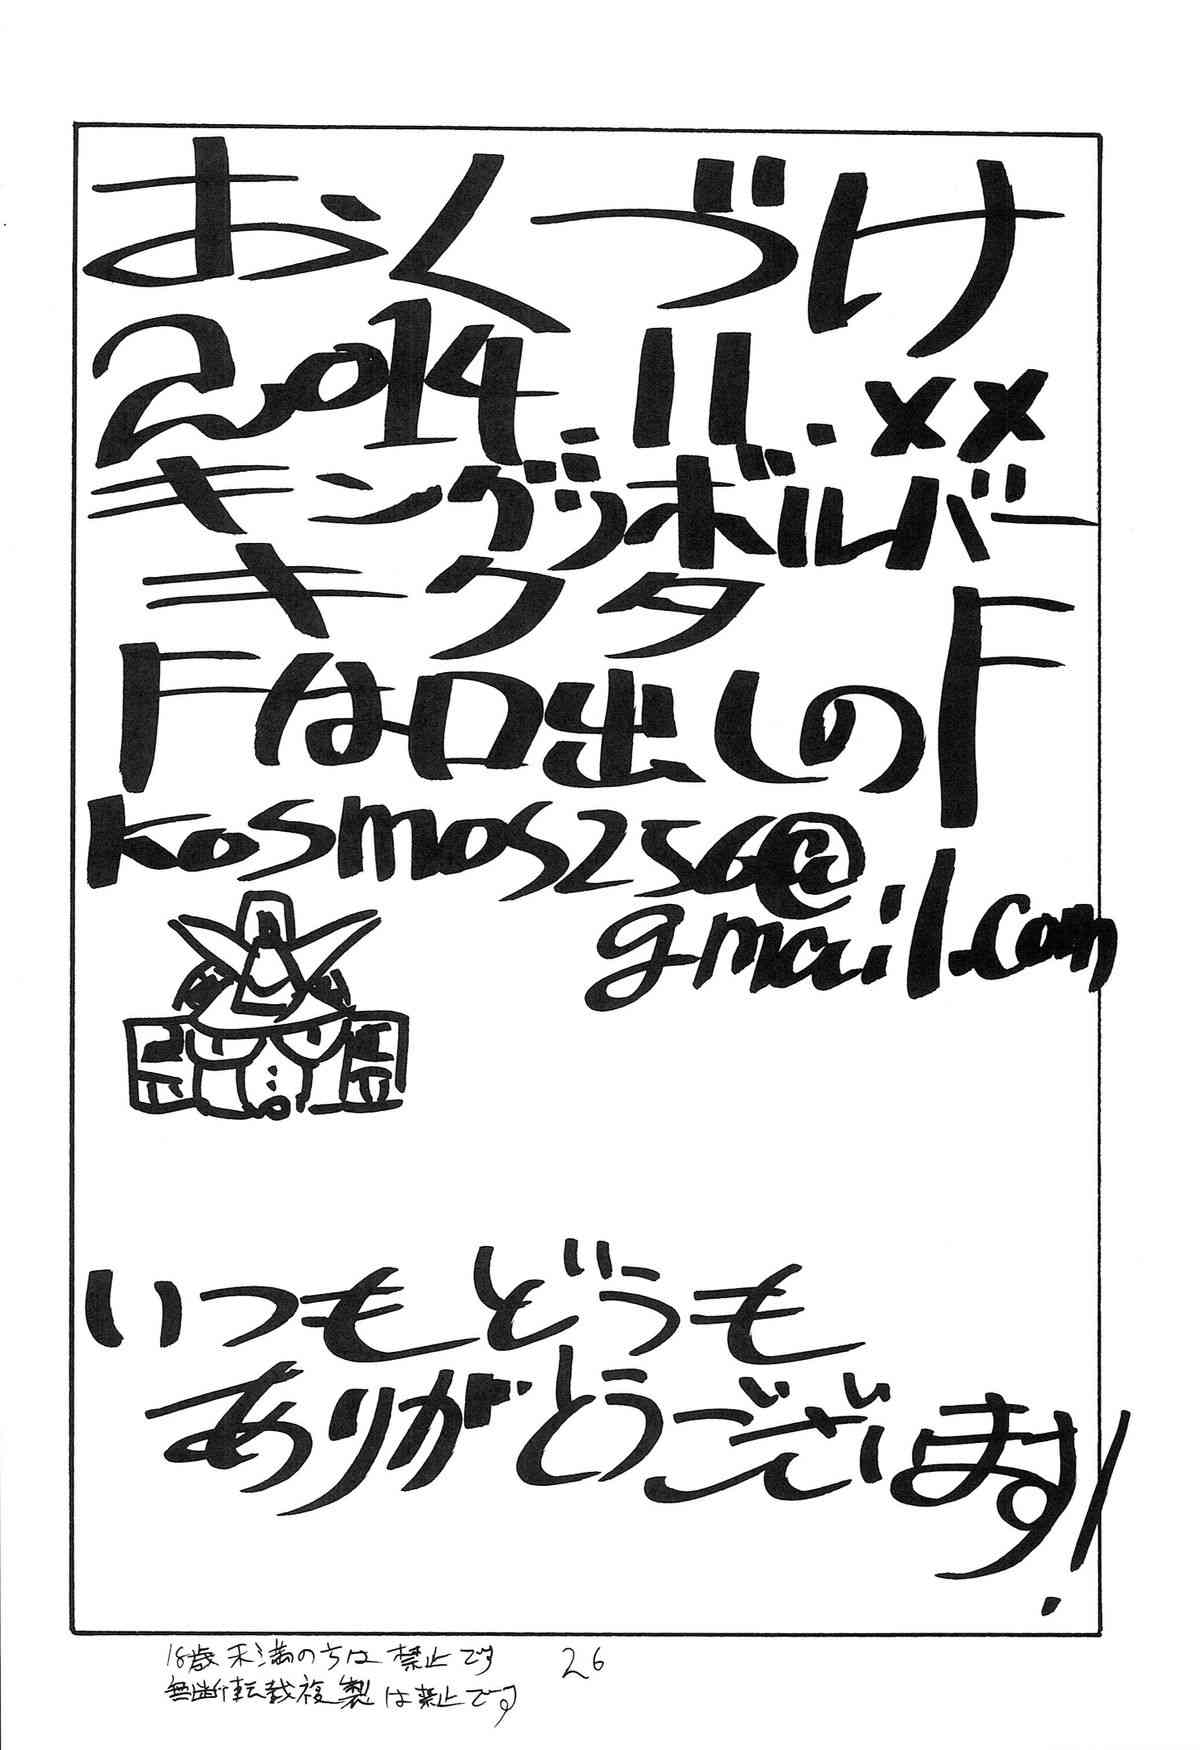 おくづけ
2014.11.××
キングリボルバー
キクタ
Fは口出しのF
kosmos256@
gmail.com
いつもどうも
ありがとうございます!
18歳未満の方は禁止です 26
無断転載複製は禁止です